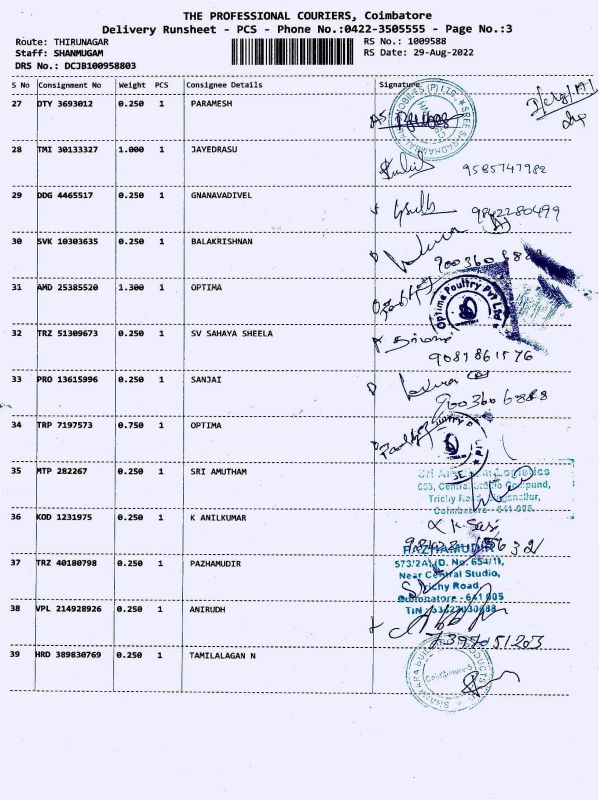 THE PROFESSIONAL COURIERS, Coimbatore
Delivery Runsheet - PCS - Phone No.:0422-3505555 - Page No.:3
Route: THIRUNAGAR
RS No.: 1009588
Staff: SHANMUGAM
RS Date: 29-Aug-2022
DRS No.: DCJB100958803
S No Consignment No Weight PCS Consignee Details Signature
27 DTY 3693012 0.250 1 PARAMESH
28 TMI 30133327 1.000 1 JAYEDRASU
9585747982
29 DDG 4465517 0.250 1 GNANAVADIVEL
9842280499
30 SVK 10303635 0.250 1 BALAKRISHNAN
31 AMD 25385520 1.300 1 OPTIMA
Optima Poultry Pvt Ltd
32 TRZ 51309673 0.250 1 SV SAHAYA SHEELA
33 PRO 13615996 0.250 1 SANJAI
9003606888
34 TRP 7197573 0.750 1 OPTIMA
35 MTP 282267 0.250 1 SRI AMUTHAM
Logistics
Coimbatore - 641 005
36 KOD 1231975 0.250 1 K ANILKUMAR
PAZHAMUDIR
37 TRZ 40180798 0.250 1 PAZHAMUDIR
573/2A, (D. No. 654/1),
Near Central Studio,
Trichy Road,
Coimbatore - 641 005
38 VPL 214928926 0.250 1 ANIRUDH
39 HRD 389830769 0.250 1 TAMILALAGAN N